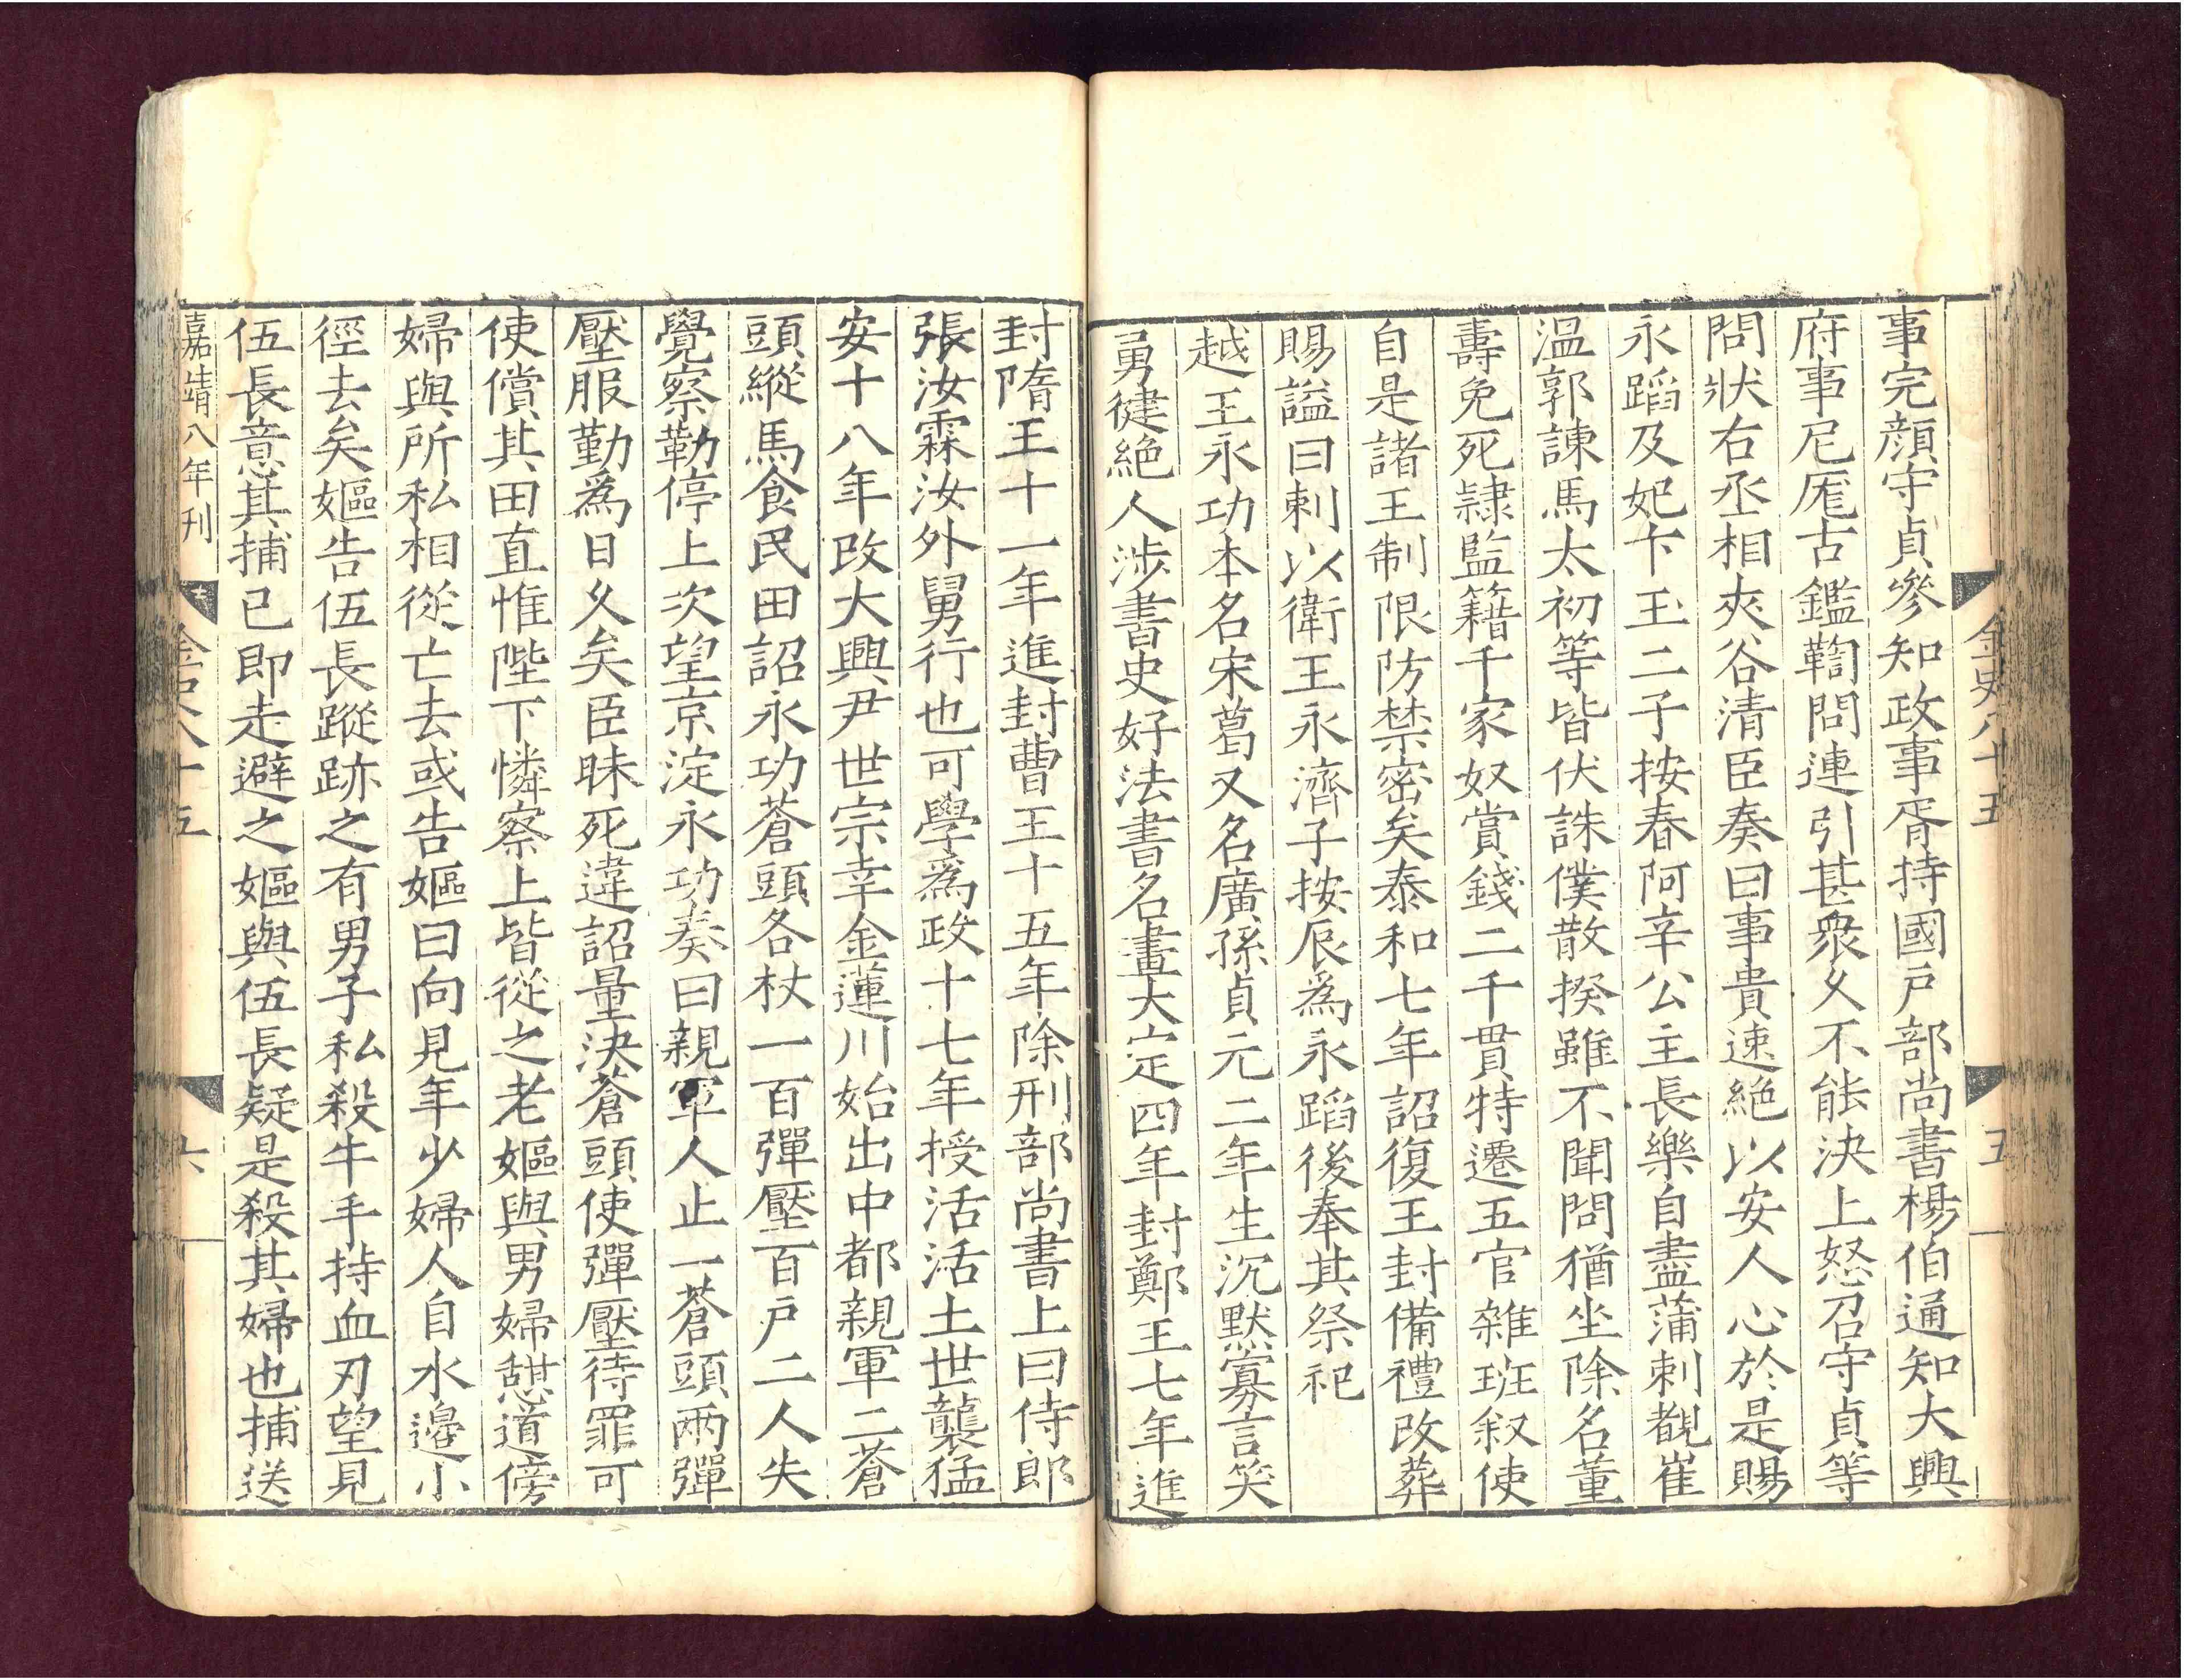 事完顔守貞參知政事胥持國戶部尚書楊伯通知大興
府事尼厖古鑑鞫問連引甚衆久不能決上怒召守貞等
問狀右丞相夾谷清臣奏曰事貴速絶以安人心於是賜
永蹈及妃卞玉二子按春阿辛公主長樂自盡蒲剌覩崔
温郭諫馬太初等皆伏誅僕散揆雖不聞問猶坐除名董
壽免死隷監籍千家奴賞錢二千貫特遷五官雜班叙使
自是諸王制限防禁密矣泰和七年詔復王封備禮改葬
賜謚曰剌以衛王永濟子按辰爲永蹈後奉其祭祀
越王永功本名宋葛又名廣孫貞元二年生沉默寡言笑
勇徤絶人涉書史好法書名畫大定四年封鄭王七年進
金史八十五
五
封隋王十一年進封曹王十五年除刑部尚書上曰侍郎
張汝霖汝外舅行也可學爲政十七年授活活土世襲猛
安十八年改大興尹世宗幸金蓮川始出中都親軍二蒼
頭縱馬食民田詔永功蒼頭各杖一百彈壓百戶二人失
覺察勒停上次望京淀永功奏曰親軍人止一蒼頭兩彈
壓服勤爲日久矣臣昧死違詔量決蒼頭使彈壓待罪可
使償其田直惟陛下憐察上皆從之老嫗與男婦憇道傍
婦與所私相從亡去或告嫗曰向見年少婦人自水邉小
徑去矣嫗告伍長蹤跡之有男子私殺牛手持血刃望見
伍長意其捕已即走避之嫗與伍長疑是殺其婦也捕送
嘉靖八年刊
金史八十五
六